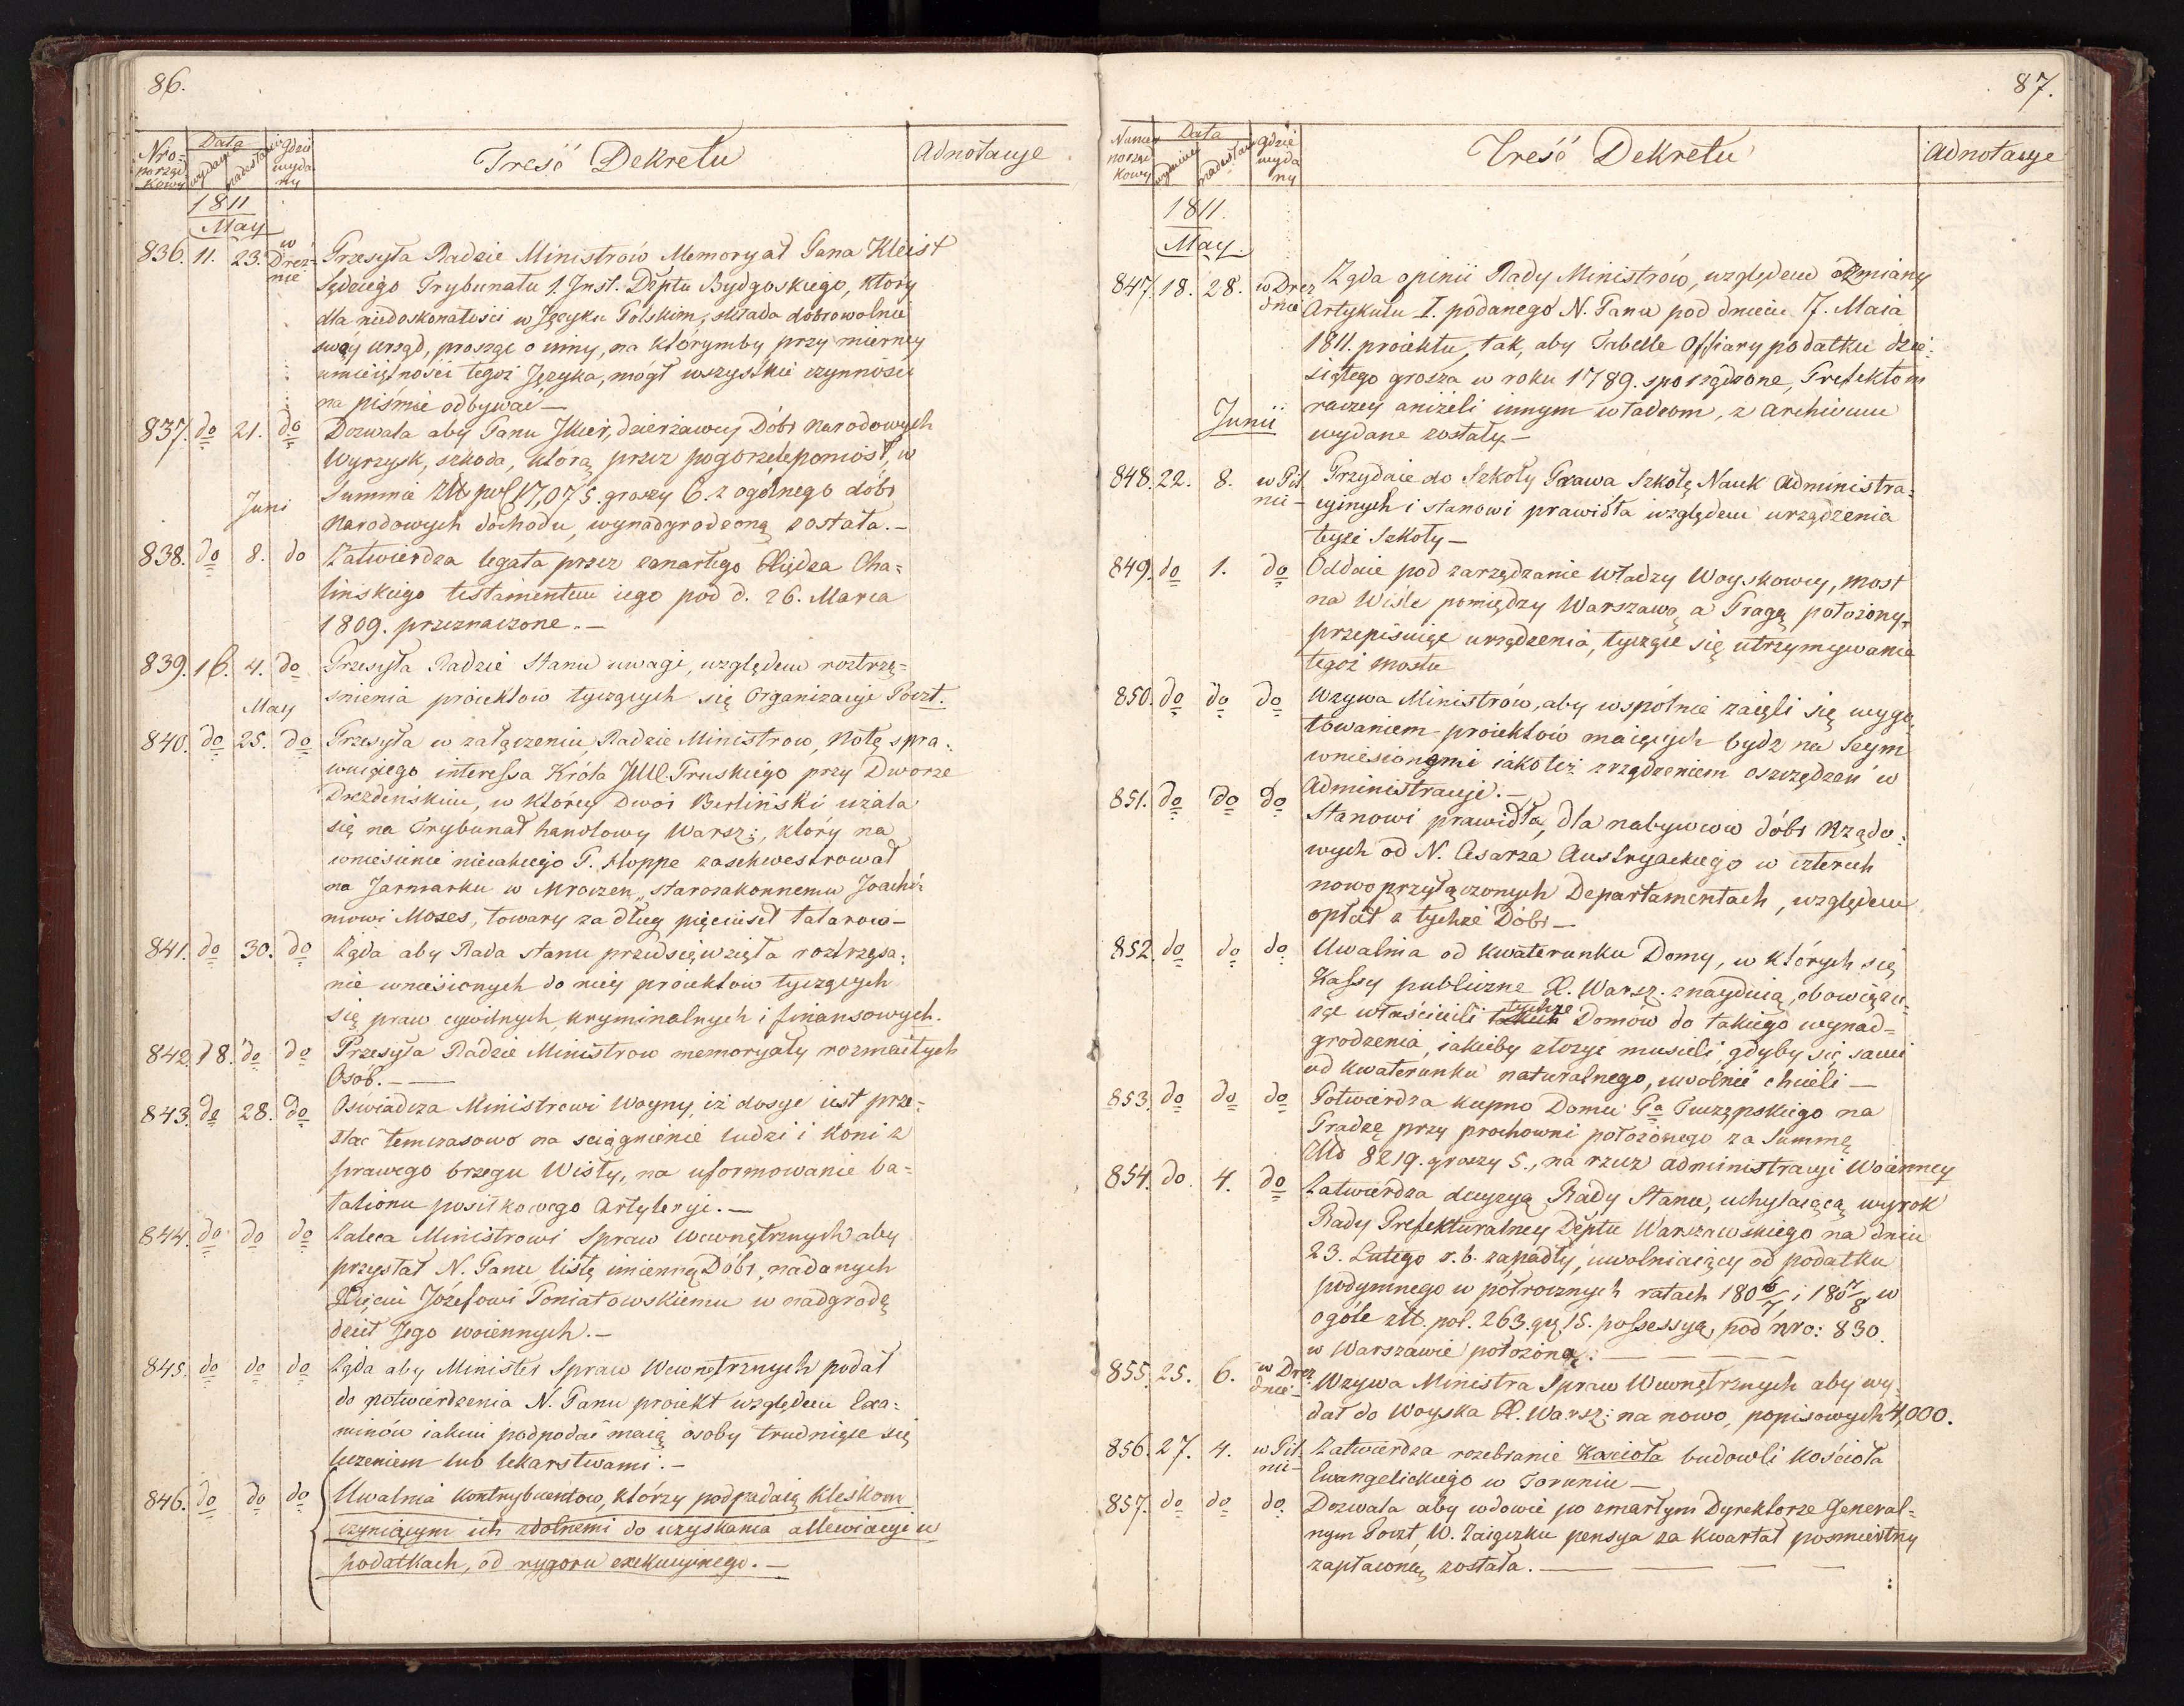 86.
Nro porząd kowy
Data
wydania
nadesłania
gdzie wyda ny
Treść Dekretu
Adnotacye
1811
May
836. 11. 23. w Dreź- nie Przesyła Radzie Ministrów Memoryał Pana Kleist
Sędziego Trybunału 1. Inst. Deptu Bydgoskiego, który
dla niedoskonałości w Języku Polskim, składa dobrowolnie
swoy urząd, prosząc o inny, na którymby przy mierney
umieiętności tegoż Języka, mogł wszystkie czynności
na piśmie odbywać —
837. do 21. do Dozwala aby Panu Jkier, dzierżawcy Dóbr Narodowych
Wyrzysk, szkoda, którą przez pogorzel poniosł, w
Summie Złt pol 17,075. groszy 6. z ogólnego dóbr
Juni
Narodowych dochodu, wynadgrodzoną została. —
838. do 8. do Zatwierdza legata przez zmarłego Xiędza Cha=
lińskiego testamentem iego pod d. 26. Marca
1809. przeznaczone. —
839. 16. 4. do Przesyła Radzie Stanu uwagi, względem roztrzą=
śnienia proiektow tyczących się Organizacyi Poczt.
May
840. do 25. do Przesyła w załączeniu, Radzie Ministrow, Notę spra=
wuiącego interessa Króla JMC Pruskiego przy Dworze
Drezdeńskim, w którey Dwór Berliński użala
się na Trybunał handlowy Warsz:, który na
wniesienie nieiakiego P. Hoppe zasekwestrował
na Jarmarku w Mroczen, starozakonnemu Joachi=
mowi Moses, towary za dług pięciuset talarow —
841. do 30. do Żąda aby Rada Stanu przedsięwzięła roztrząsa=
nie wniesionych do niey proiektow tyczących
się praw cywilnych, kryminalnych i finansowych.
842. 18. do do Przesyła Radzie Ministrow memoryały rozmaitych
Osób. —
843. do 28. do Oświadcza Ministrowi Woyny, iż dosyć iest prze=
stać temczasowo na sciągnienie ludzi i koni z
prawego brzegu Wisły, na uformowanie ba=
talionu posiłkowego Artyleryi. —
844. do do do Zaleca Ministrowi Spraw Wewnętrznych aby
przysłał N. Panu listę imienną Dóbr, nadanych
Xięciu Józefowi Poniatowskiemu w nadgrodę
dzieł Jego woiennych. —
845. do do do Żąda aby Minister Spraw Wewnętrznych podał
do potwierdzenia N. Panu proiekt względem Exa=
minów iakim podpadać maią osoby trudniące się
leczeniem lub lekarstwami. —
846. do do do Uwalnia kontrybuentow, którzy podpadaią kleskom
czyniącym ich zdolnemi do uzyskania allewiacyi w
podatkach, od rygoru exekucyinego. —
87.
Numer porząd kowy
Data
wydania
nadesłania
gdzie wyda ny
Treść Dekretu
Adnotacye
1811.
May.
847. 18. 28. w Drez dnie Żąda opinii Rady Ministrów, względem odmiany
Artykułu I. podanego N. Panu pod dniem 7. Maia
1811. proiektu, tak, aby Tabelle Offiary podatku dzie=
siątego grosza w roku 1789. sporządzone, Prefektom
Junii
raczey aniżeli innym władzom, z Archiwum
wydane zostały —
848. 22. 8. w Pil nic— Przydaie do Szkoły Prawa Szkołę Nauk Administra=
cyinych i stanowi prawidła względem urządzenia
teyże Szkoły —
849. do 1. do Oddaie pod zarządzanie Władzy Woyskowey, most
na Wiśle pomiędzy Warszawą a Pragą położony,
przepisuiąc urządzenia, tyczące się utrzymywania
tegoż mostu
850. do do do Wzywa Ministrów, aby wspólnie zaięli się wygo=
towaniem proiektów maiących bydz na Seym
wniesionymi iakoteż zrządzeniem oszczędzeń w
Administracyi. —
851. do do do Stanowi prawidła, dla nabywcow dóbr Rządo=
wych od N. Cesarza Austryackiego w czterech
nowo przyłączonych Departamentach, względem
opłat z tychże Dóbr —
852. do do do Uwalnia od kwaterunku Domy, w których się
Kassy publiczne X. Warsz. znayduią, obowiązu=
iąc właścicieli tychże Domów do takiego wynad=
grodzenia, iakieby złożyć musieli, gdyby się sami
od kwaterunku naturalnego, uwolnić chcieli —
853. do do do Potwierdza kupno Domu Pa Tuczępskiego na
Pradze przy prochowni położonego za Summę
Złt 8219. groszy 5., na rzecz administracyi Woienney
854. do. 4. do Zatwierdza decyzyą Rady Stanu, uchylaiącą wyrok
Rady Prefekturalney Deptu Warszawskiego na dniu
23. Lutego r. b. zapadły, uwolniaiący od podatku
podymnego w półrocznych ratach 1806/7 i 1807/8 w
ogóle złt. pol. 263. gr. 15. possessyą, pod Nro: 830.
w Warszawie położoną. —
855. 25. 6. w Drez dnie— Wzywa Ministra Spraw Wewnętrznych aby wy=
dał do Woyska X. Warsz: na nowo, popisowych 4,000.
856. 27. 4. w Pil nic— Zatwierdza rozebranie Kościoła budowli Kościoła
Ewangelickiego w Toruniu —
857. do do do. Dozwala aby wdowie po zmarłym Dyrektorze General=
nym Poczt, W. Zaiączku pensya za kwartał posmiertny
zapłaconą została. —